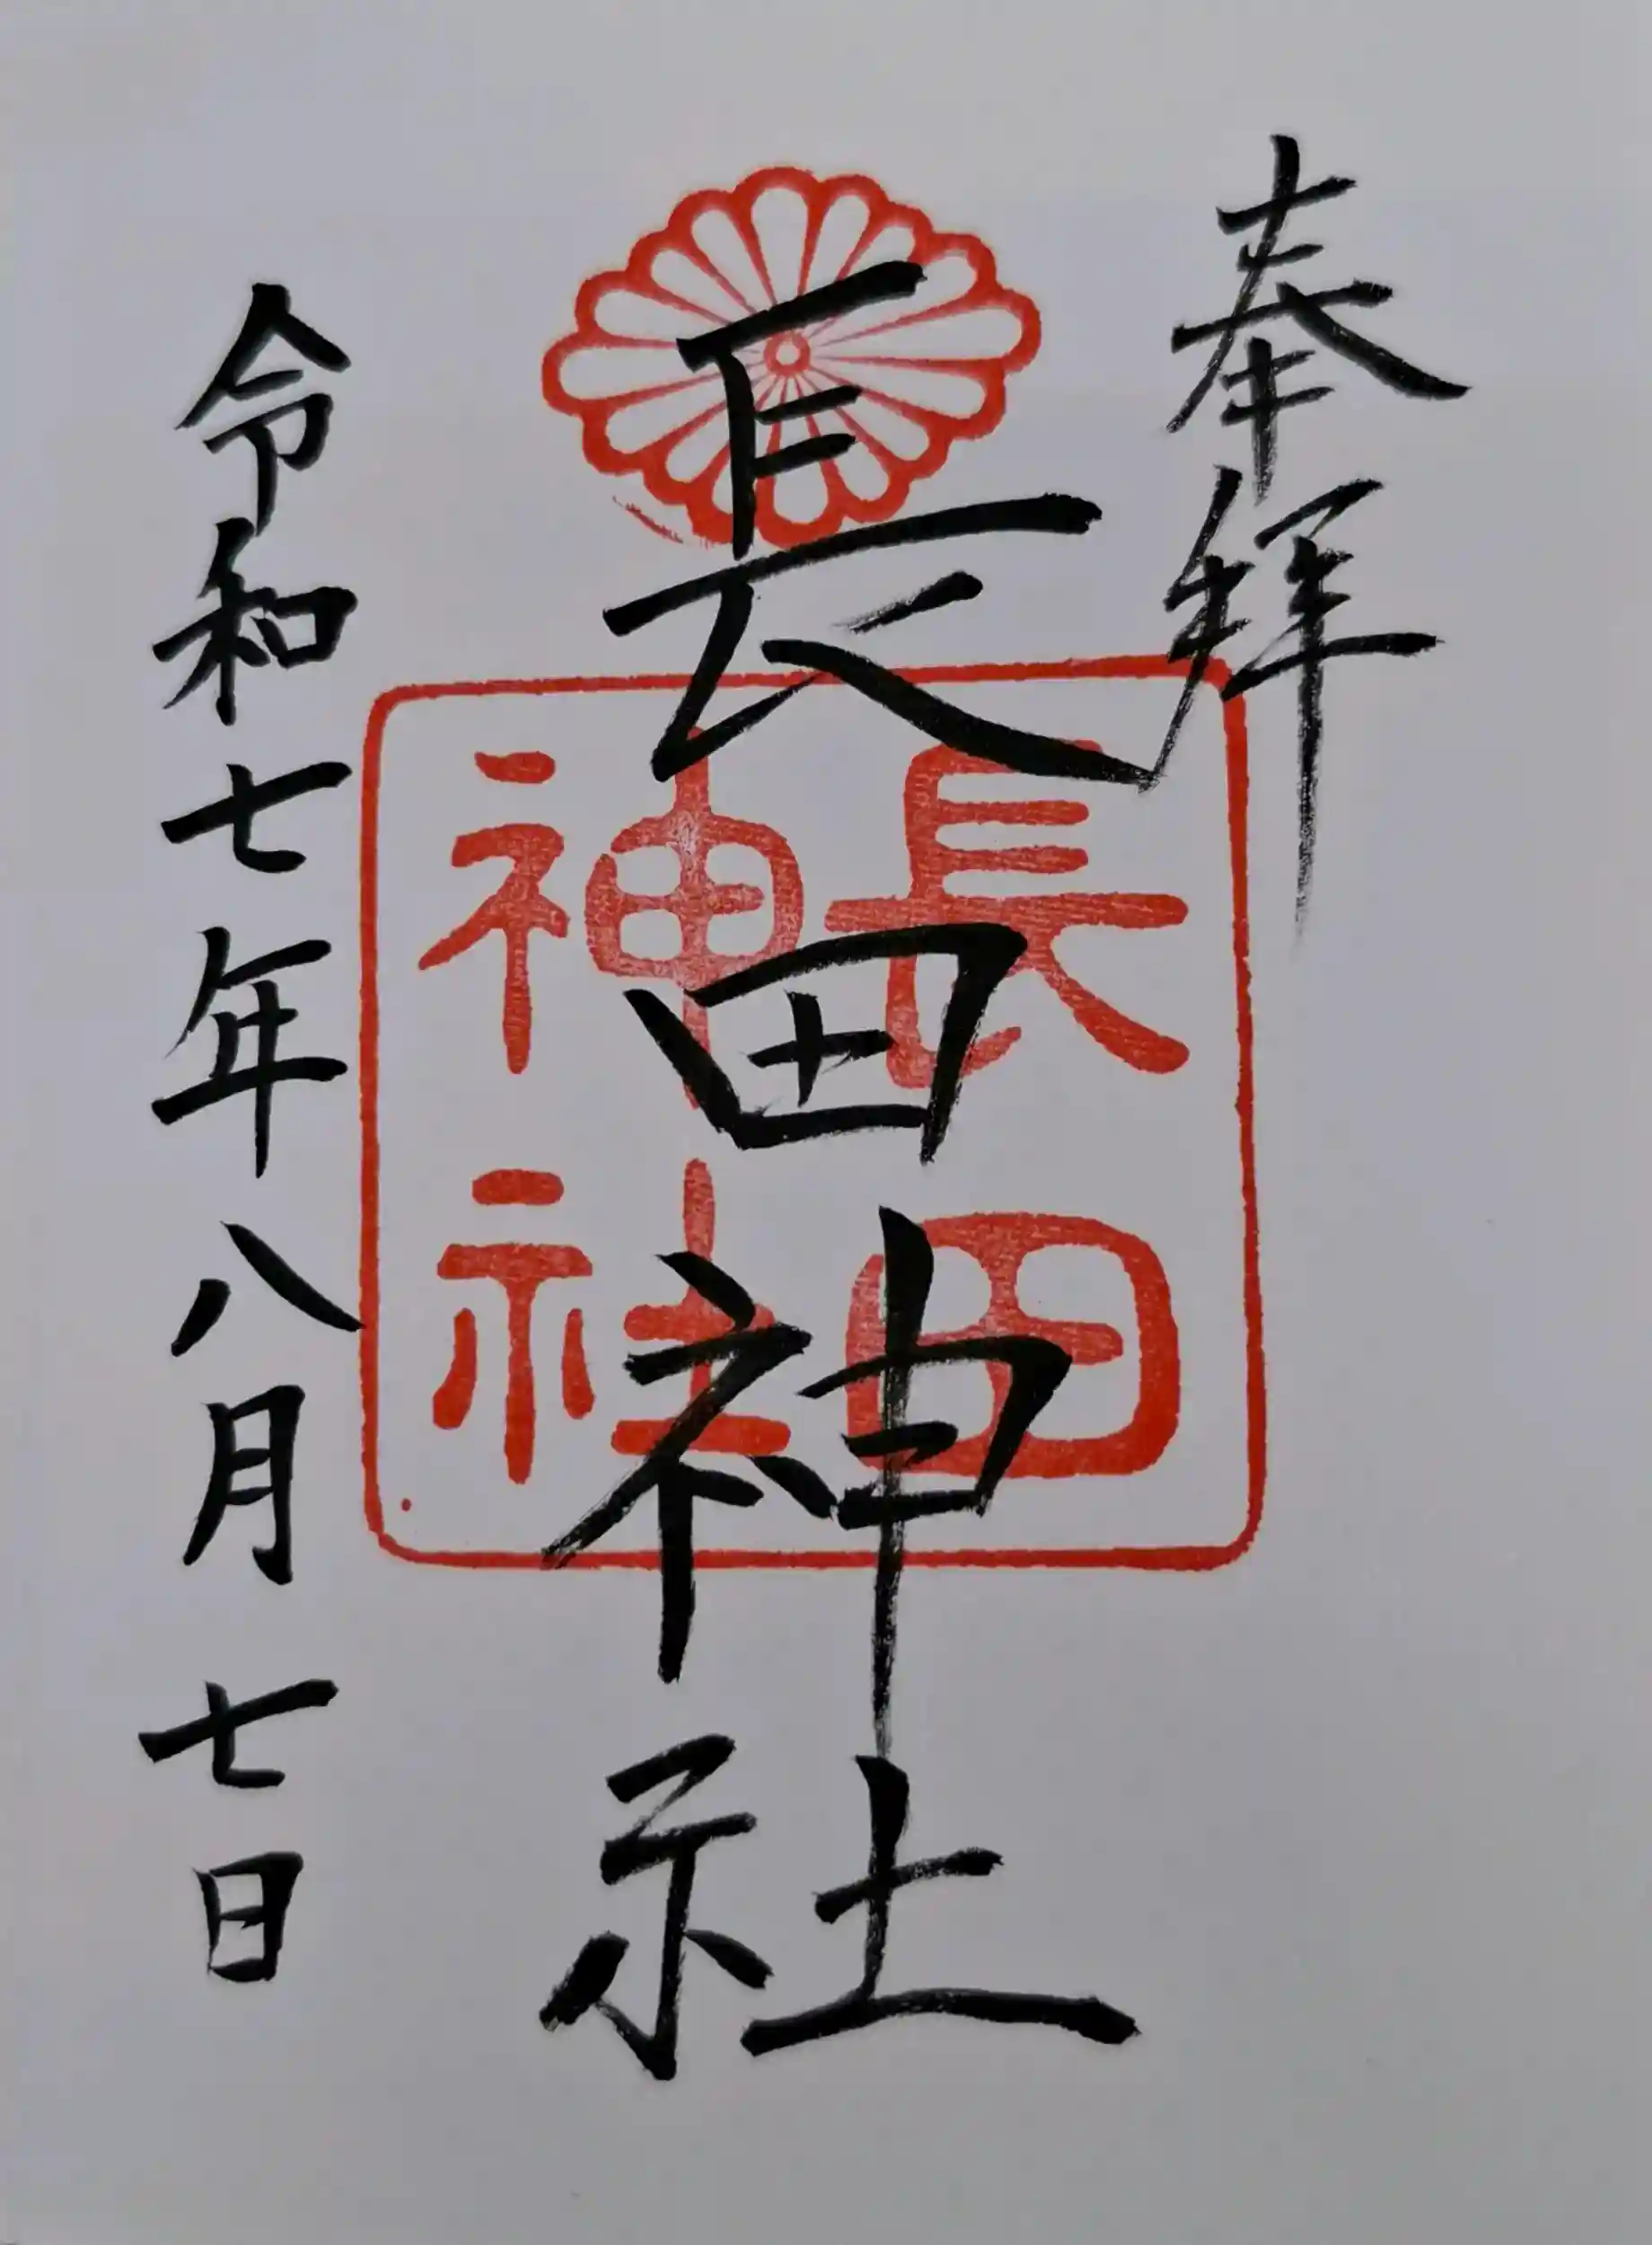 奉拝
長田神社
長田
神社
令和七年八月七日